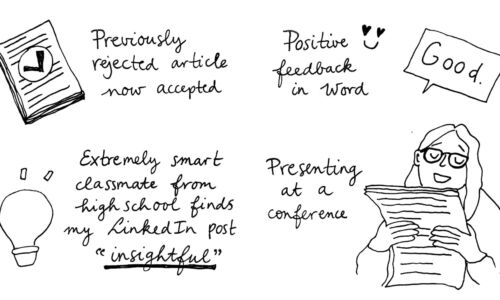 Previously
rejected article
now accepted
Positive
feedback
in Word
Good.
Extremely smart
classmate from
high school finds
my LinkedIn post
"insightful"
Presenting
at a
conference